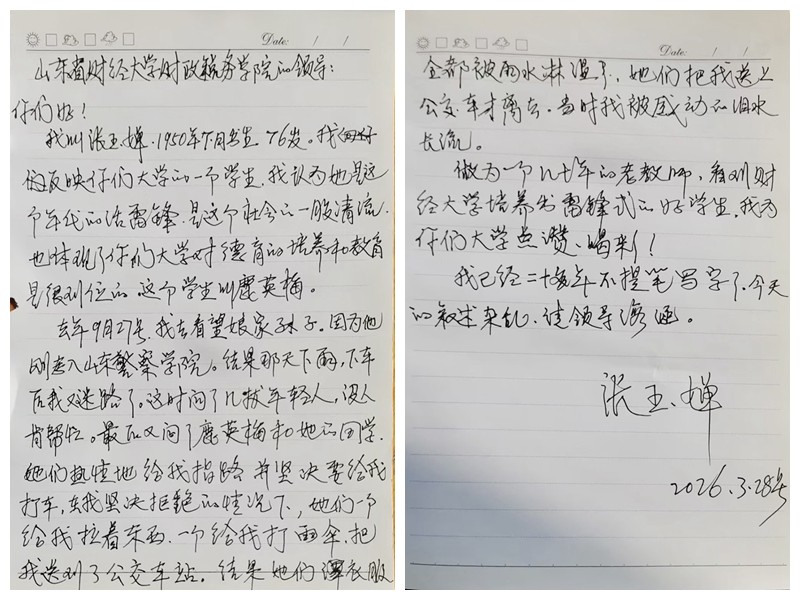 Date: / /
山东省财经大学财政税务学院的领导:
你们好!
我叫张玉婵.1950年7月出生 76岁。我
反映你们大学的一个学生.我认为她是这
个年代的活雷锋.是这个社会的一股清流.
也体现了你们大学对德育的培养和教育
是很到位的.这个学生叫鹿英梅。
去年9月27号.我去看望娘家孙子。因为他
刚考入山东警察学院。结果那天下雨,下车
后我又迷路了。这时问了几拨年轻人,没人
肯帮忙。最后又问了鹿英梅和她的同学.
她们热情地给我指路并坚决要给我
打车,在我坚决拒绝的情况下,她们一个
给我拉着东西.一个给我打雨伞.把
我送到了公交车站.结果她们浑衣服
Date: / /
全都被雨水淋湿了,她们把我送上
公交车才离去.当时我被感动的泪水
长流。
做为一个几十年的老教师,看到财
经大学培养出雷锋式的好学生.我为
你们大学点赞、喝彩!
我已经二十多年不提笔写字了.今天
的叙述杂乱.请领导海涵。
张玉婵
2026.3.28号